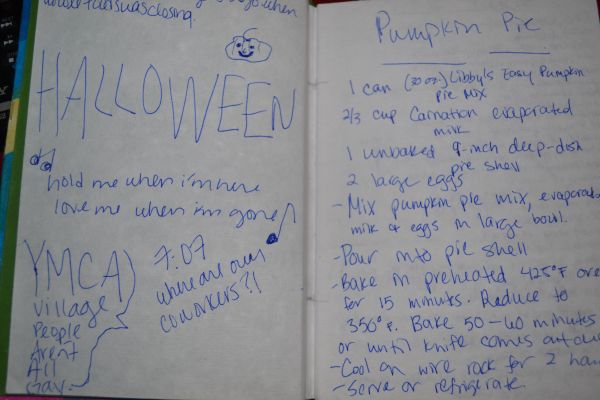 when
was closing.
HALLOWEEN
hold me when i'm here
love me when i'm gone
YMCA
Village
People
Arent
All
Gay
7:07
where are our
coworkers?!
Pumpkin Pie
1 can (30 oz) Libby's Easy Pumpkin
Pie Mix
2/3 cup Carnation evaporated
milk
1 unbaked 9-inch deep-dish
pie shell
2 large eggs
- Mix pumpkin pie mix, evaporated
milk & eggs in large bowl.
- Pour into pie shell
- Bake in preheated 425°F ove
for 15 minutes. Reduce to
350°F. Bake 50-60 minutes
or until knife comes out clea
- Cool on wire rack for 2 hou
- Serve or refrigerate.